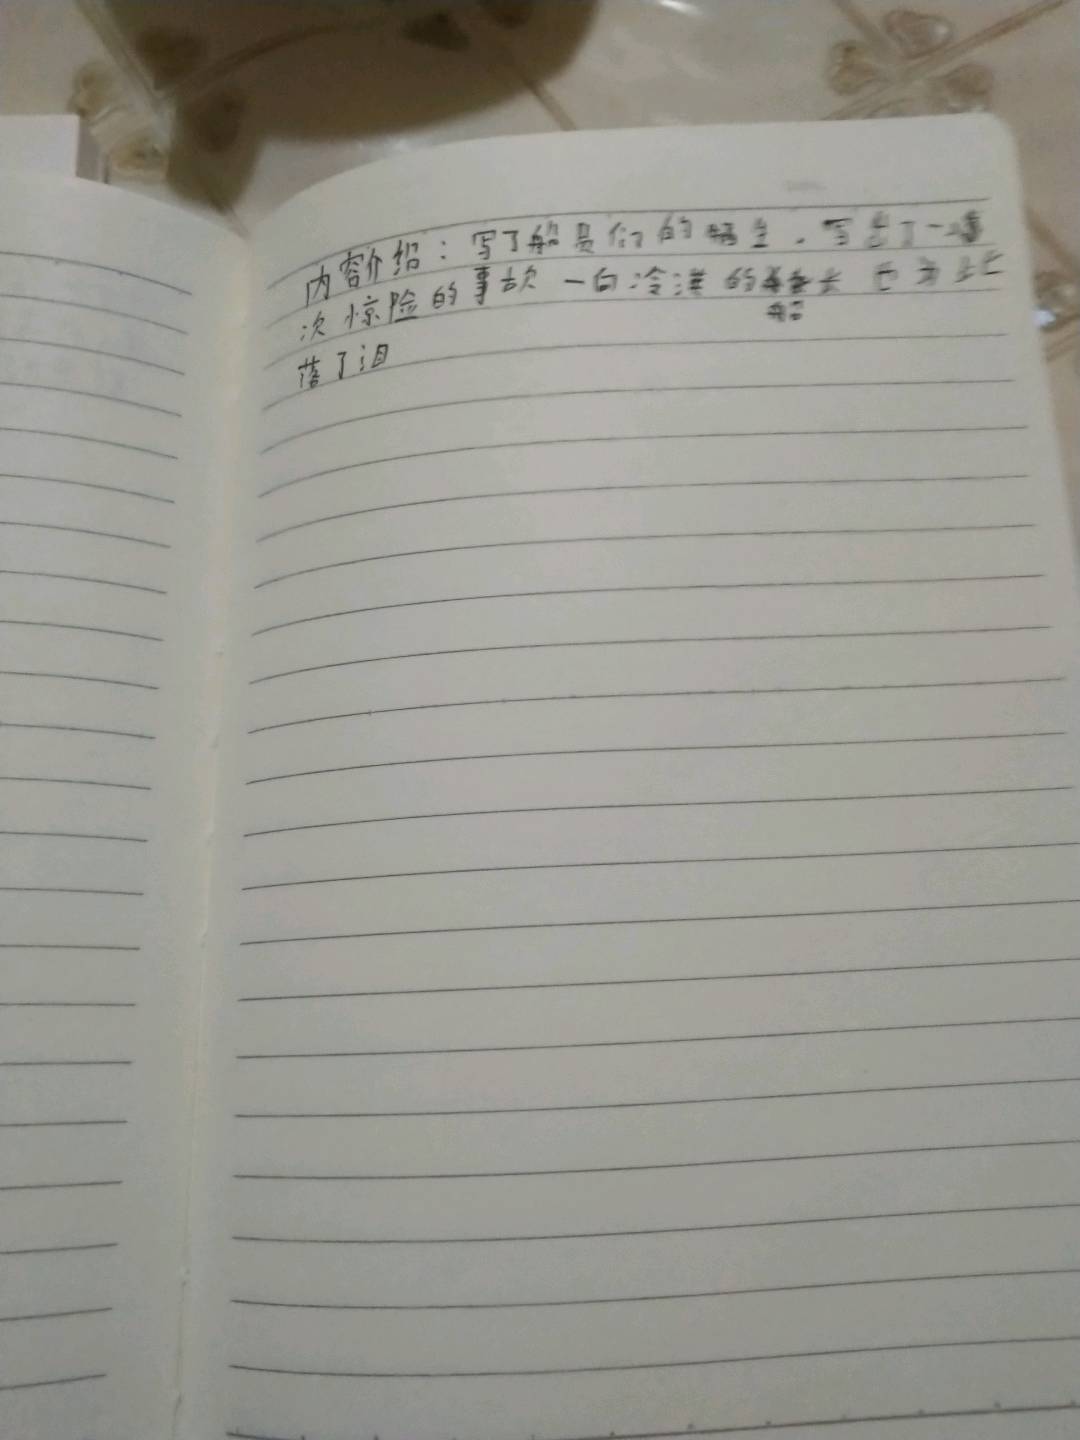 内容介绍：写了船员们的 生，写出了一
次惊险的事故 一向冷漠的船长 也为此
落了泪